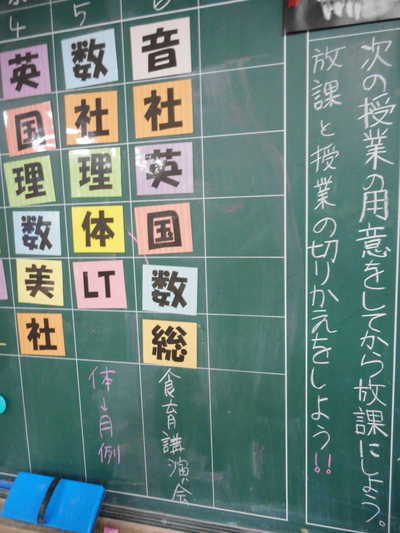 次の授業の用意をしてから放課にしよう。
放課と授業の切りかえをしよう!!
4 5 6
英 数 音
国 社 社
理 理 英
数 体 国
美 LT 数
社 総
体→月例
食育講演会